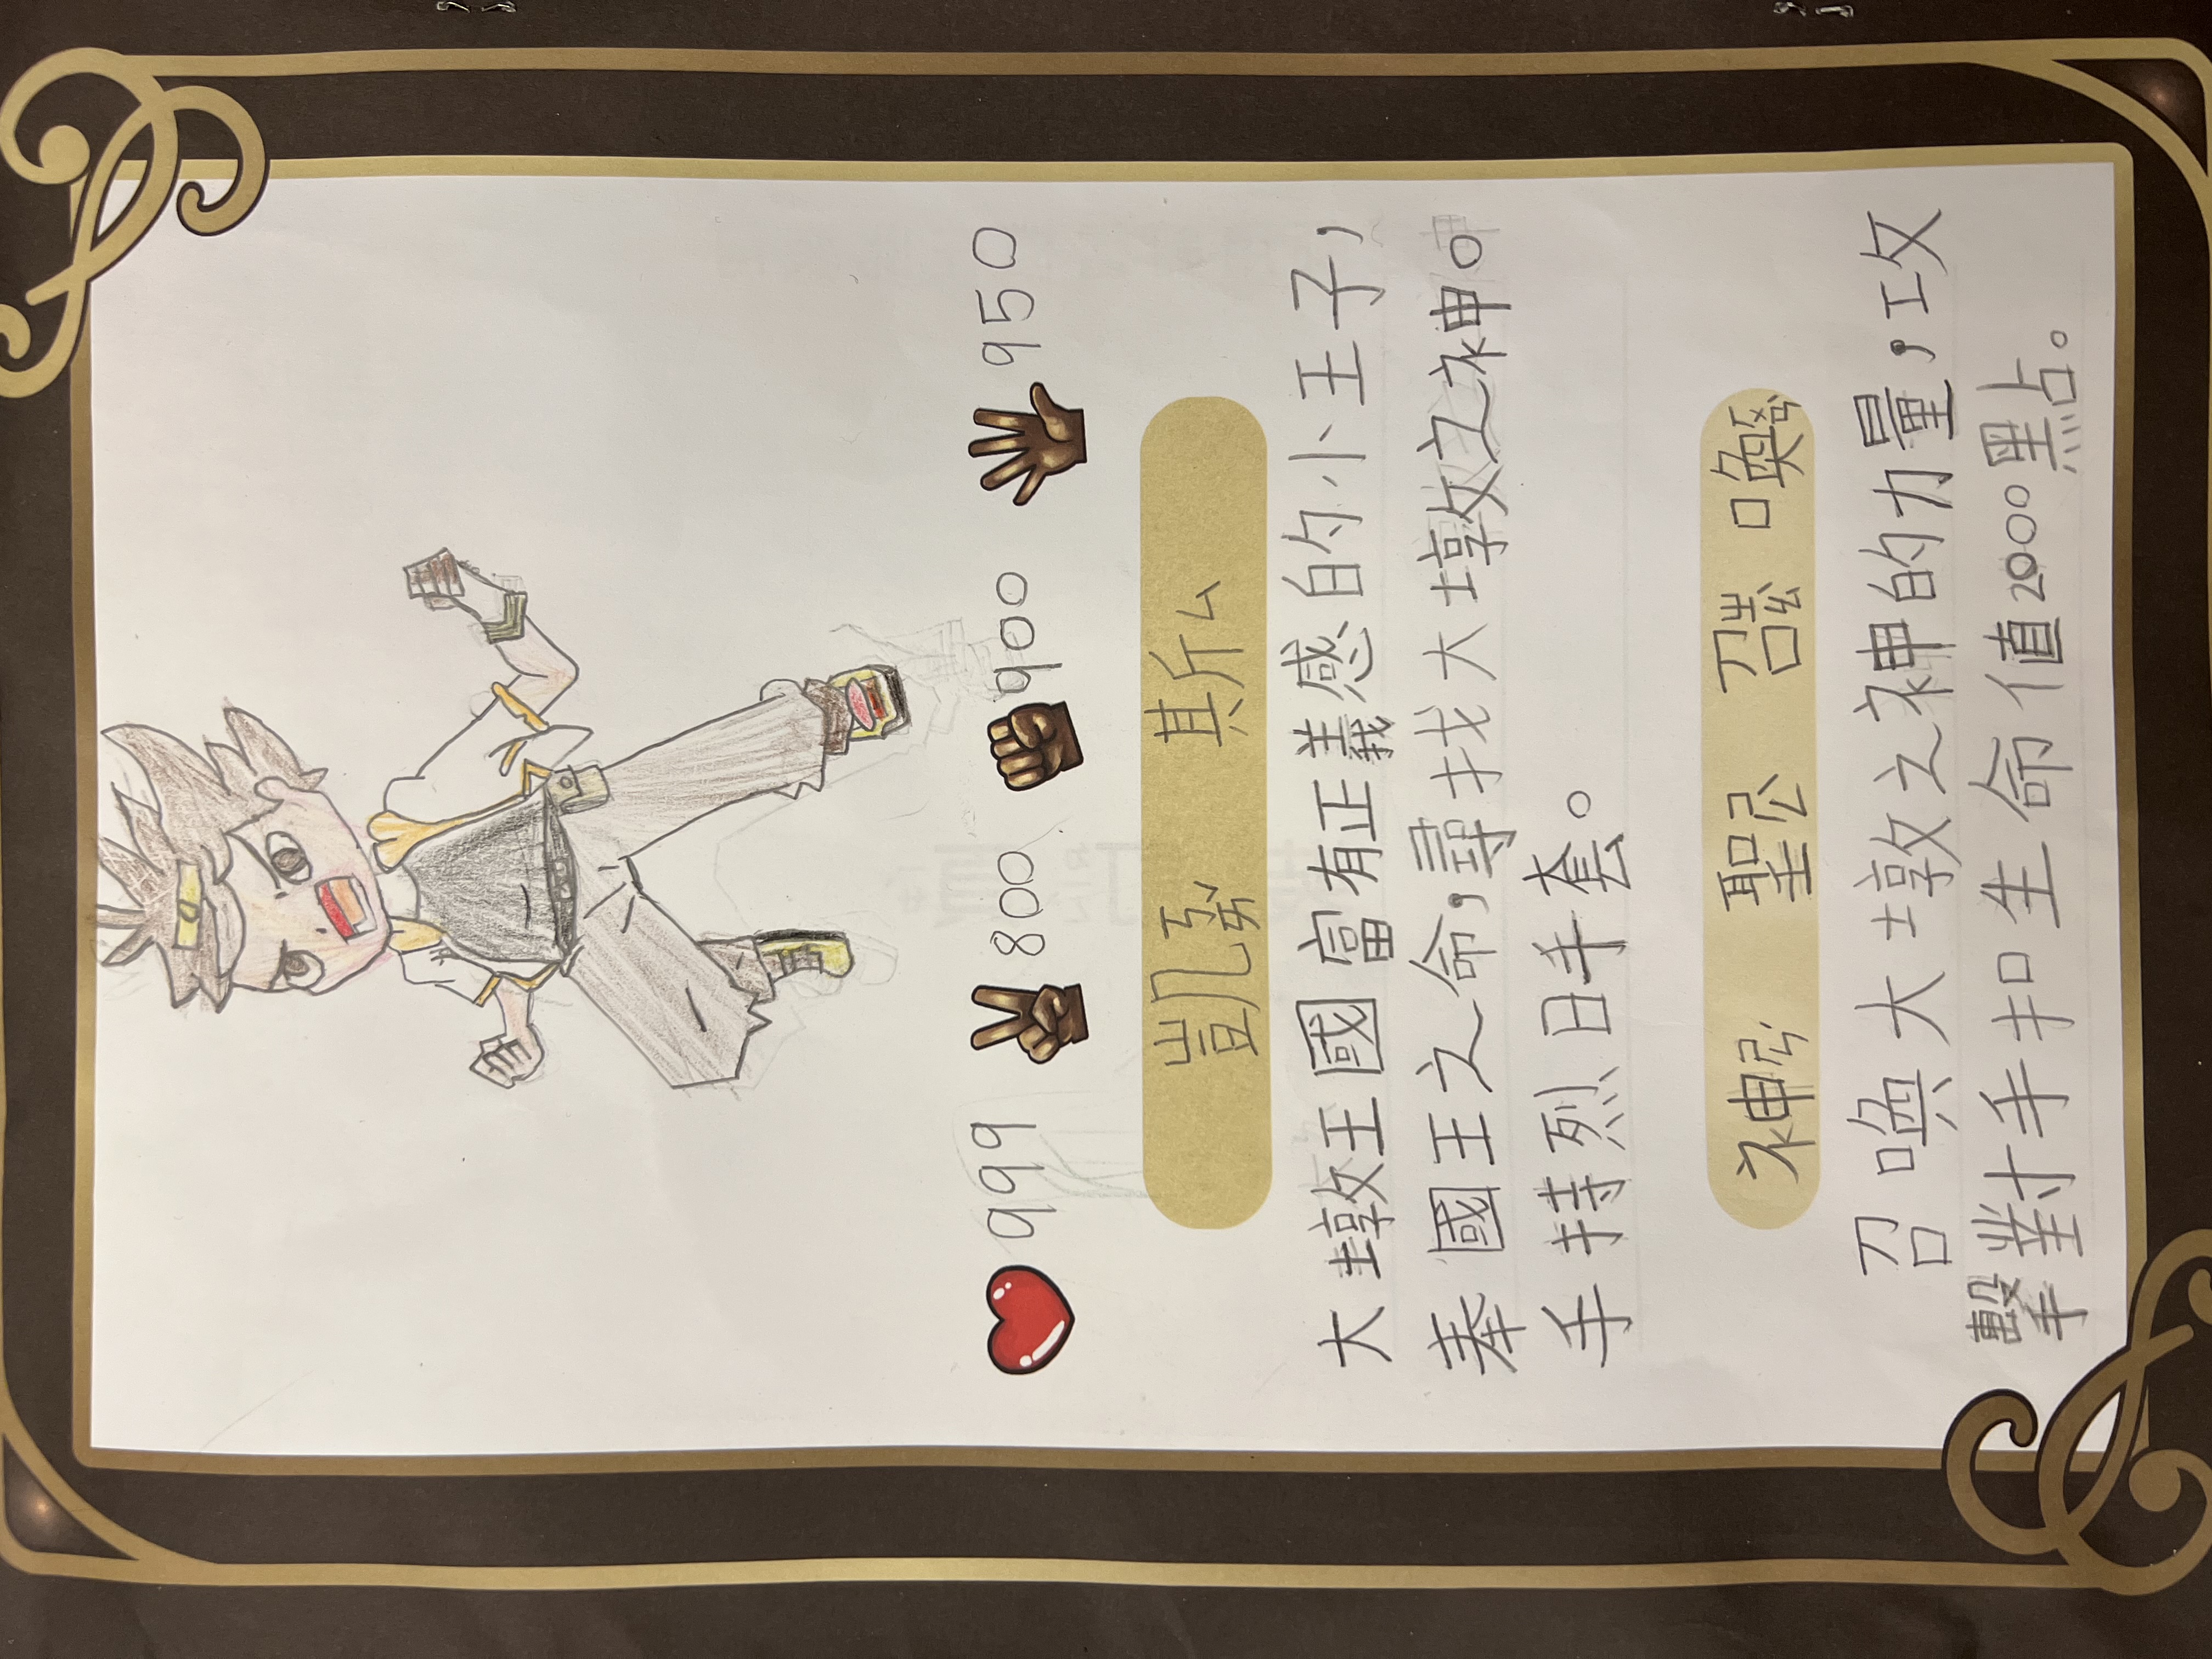 999 800 900 950
凱發 其斤ㄙ
大墩王國富有正義感的小王子,
奉國王之命,尋找大墩之神。
手持烈日手套。
神 聖 召 喚
召喚大墩之神的力量,攻
擊對手扣生命值2000點。